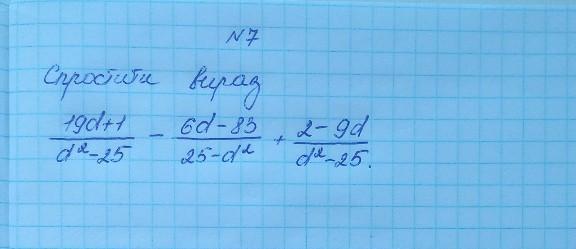 N7
Спростити вираз
19d+1/d²-25 - 6d-83/25-d² + 2-9d/d²-25.